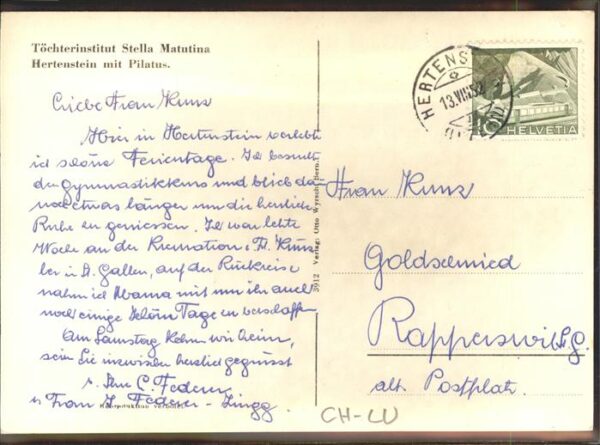 Töchterinstitut Stella Matutina
Hertenstein mit Pilatus.
Liebe Frau Kunz
Hier in Hertenstein verlebte
ich schöne Ferientage. Ich besuchte
den Gymnastikkurs und blieb da-
nach etwas länger um die herrliche
Ruhe zu geniessen. Ich war letzte
Woche an der Kremation
in St. Gallen, auf der Rückreise
nahm ich Mama mit um ihr auch
noch einige schöne Tage zu verschaffen
Am Samstag kehren wir heim,
seien Sie inzwischen herzlich gegrüsst
v. Ihrer C. Federer
u. Frau J. Federer-Zingg.
3912 Verlag: Otto Wyrsch, Bern
HERTENSTEIN
13.VIII.52
10
HELVETIA
Frau Kunz
Goldschmied
Rapperswil St. G.
alt. Postplatz.
CH-LU